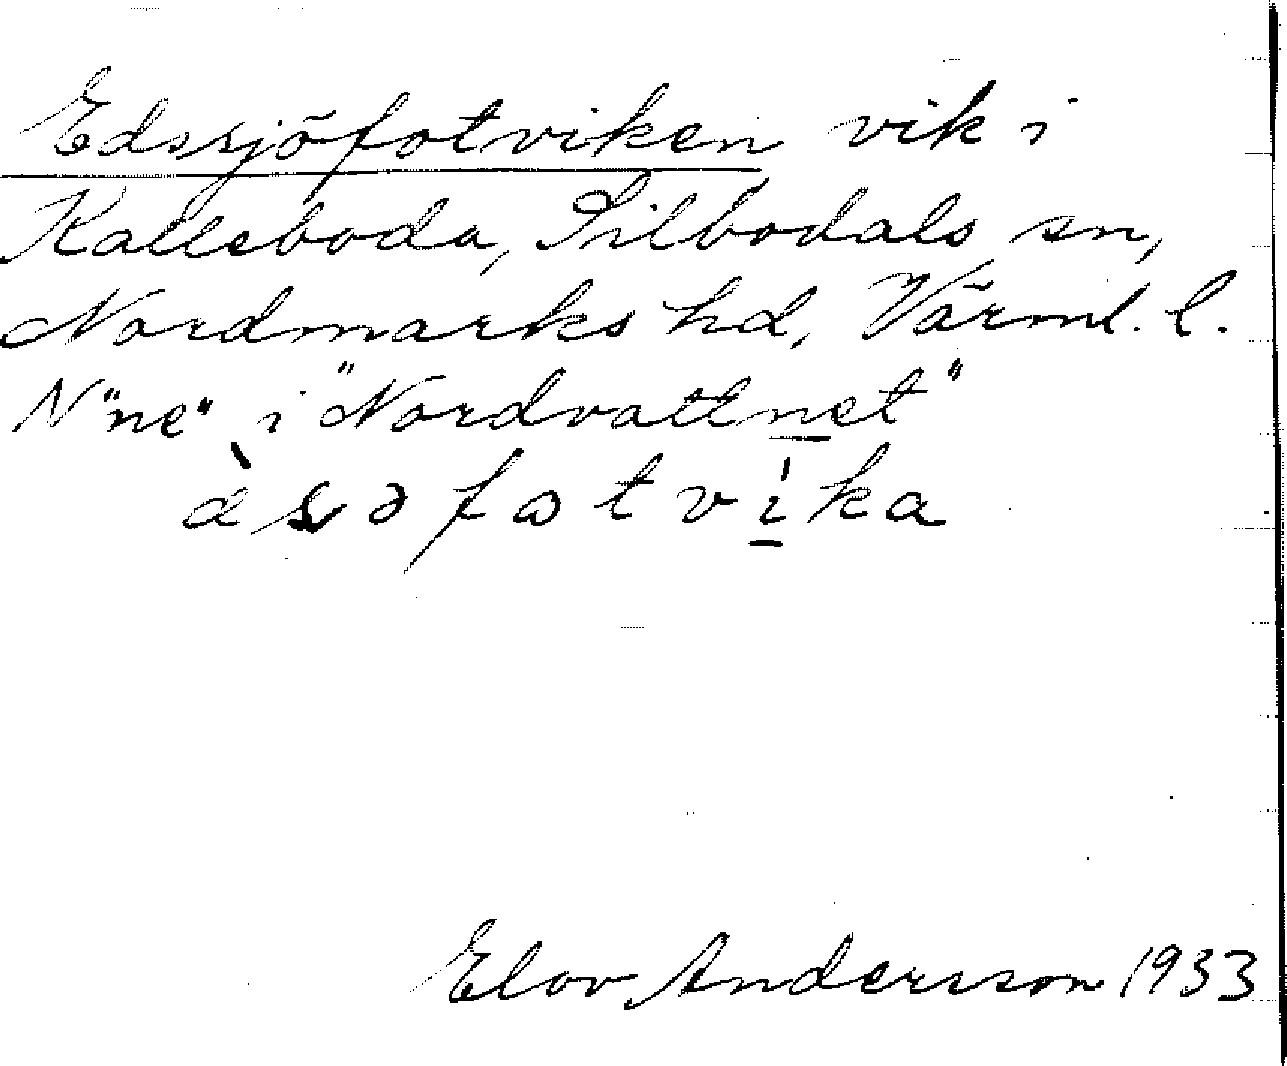 Edssjöfotviken vik i
Kalleboda, Silbodals sn,
Nordmarks hd, Värml. l.
N"ne" i "Nordvattnet"
Elov Andersson 1933